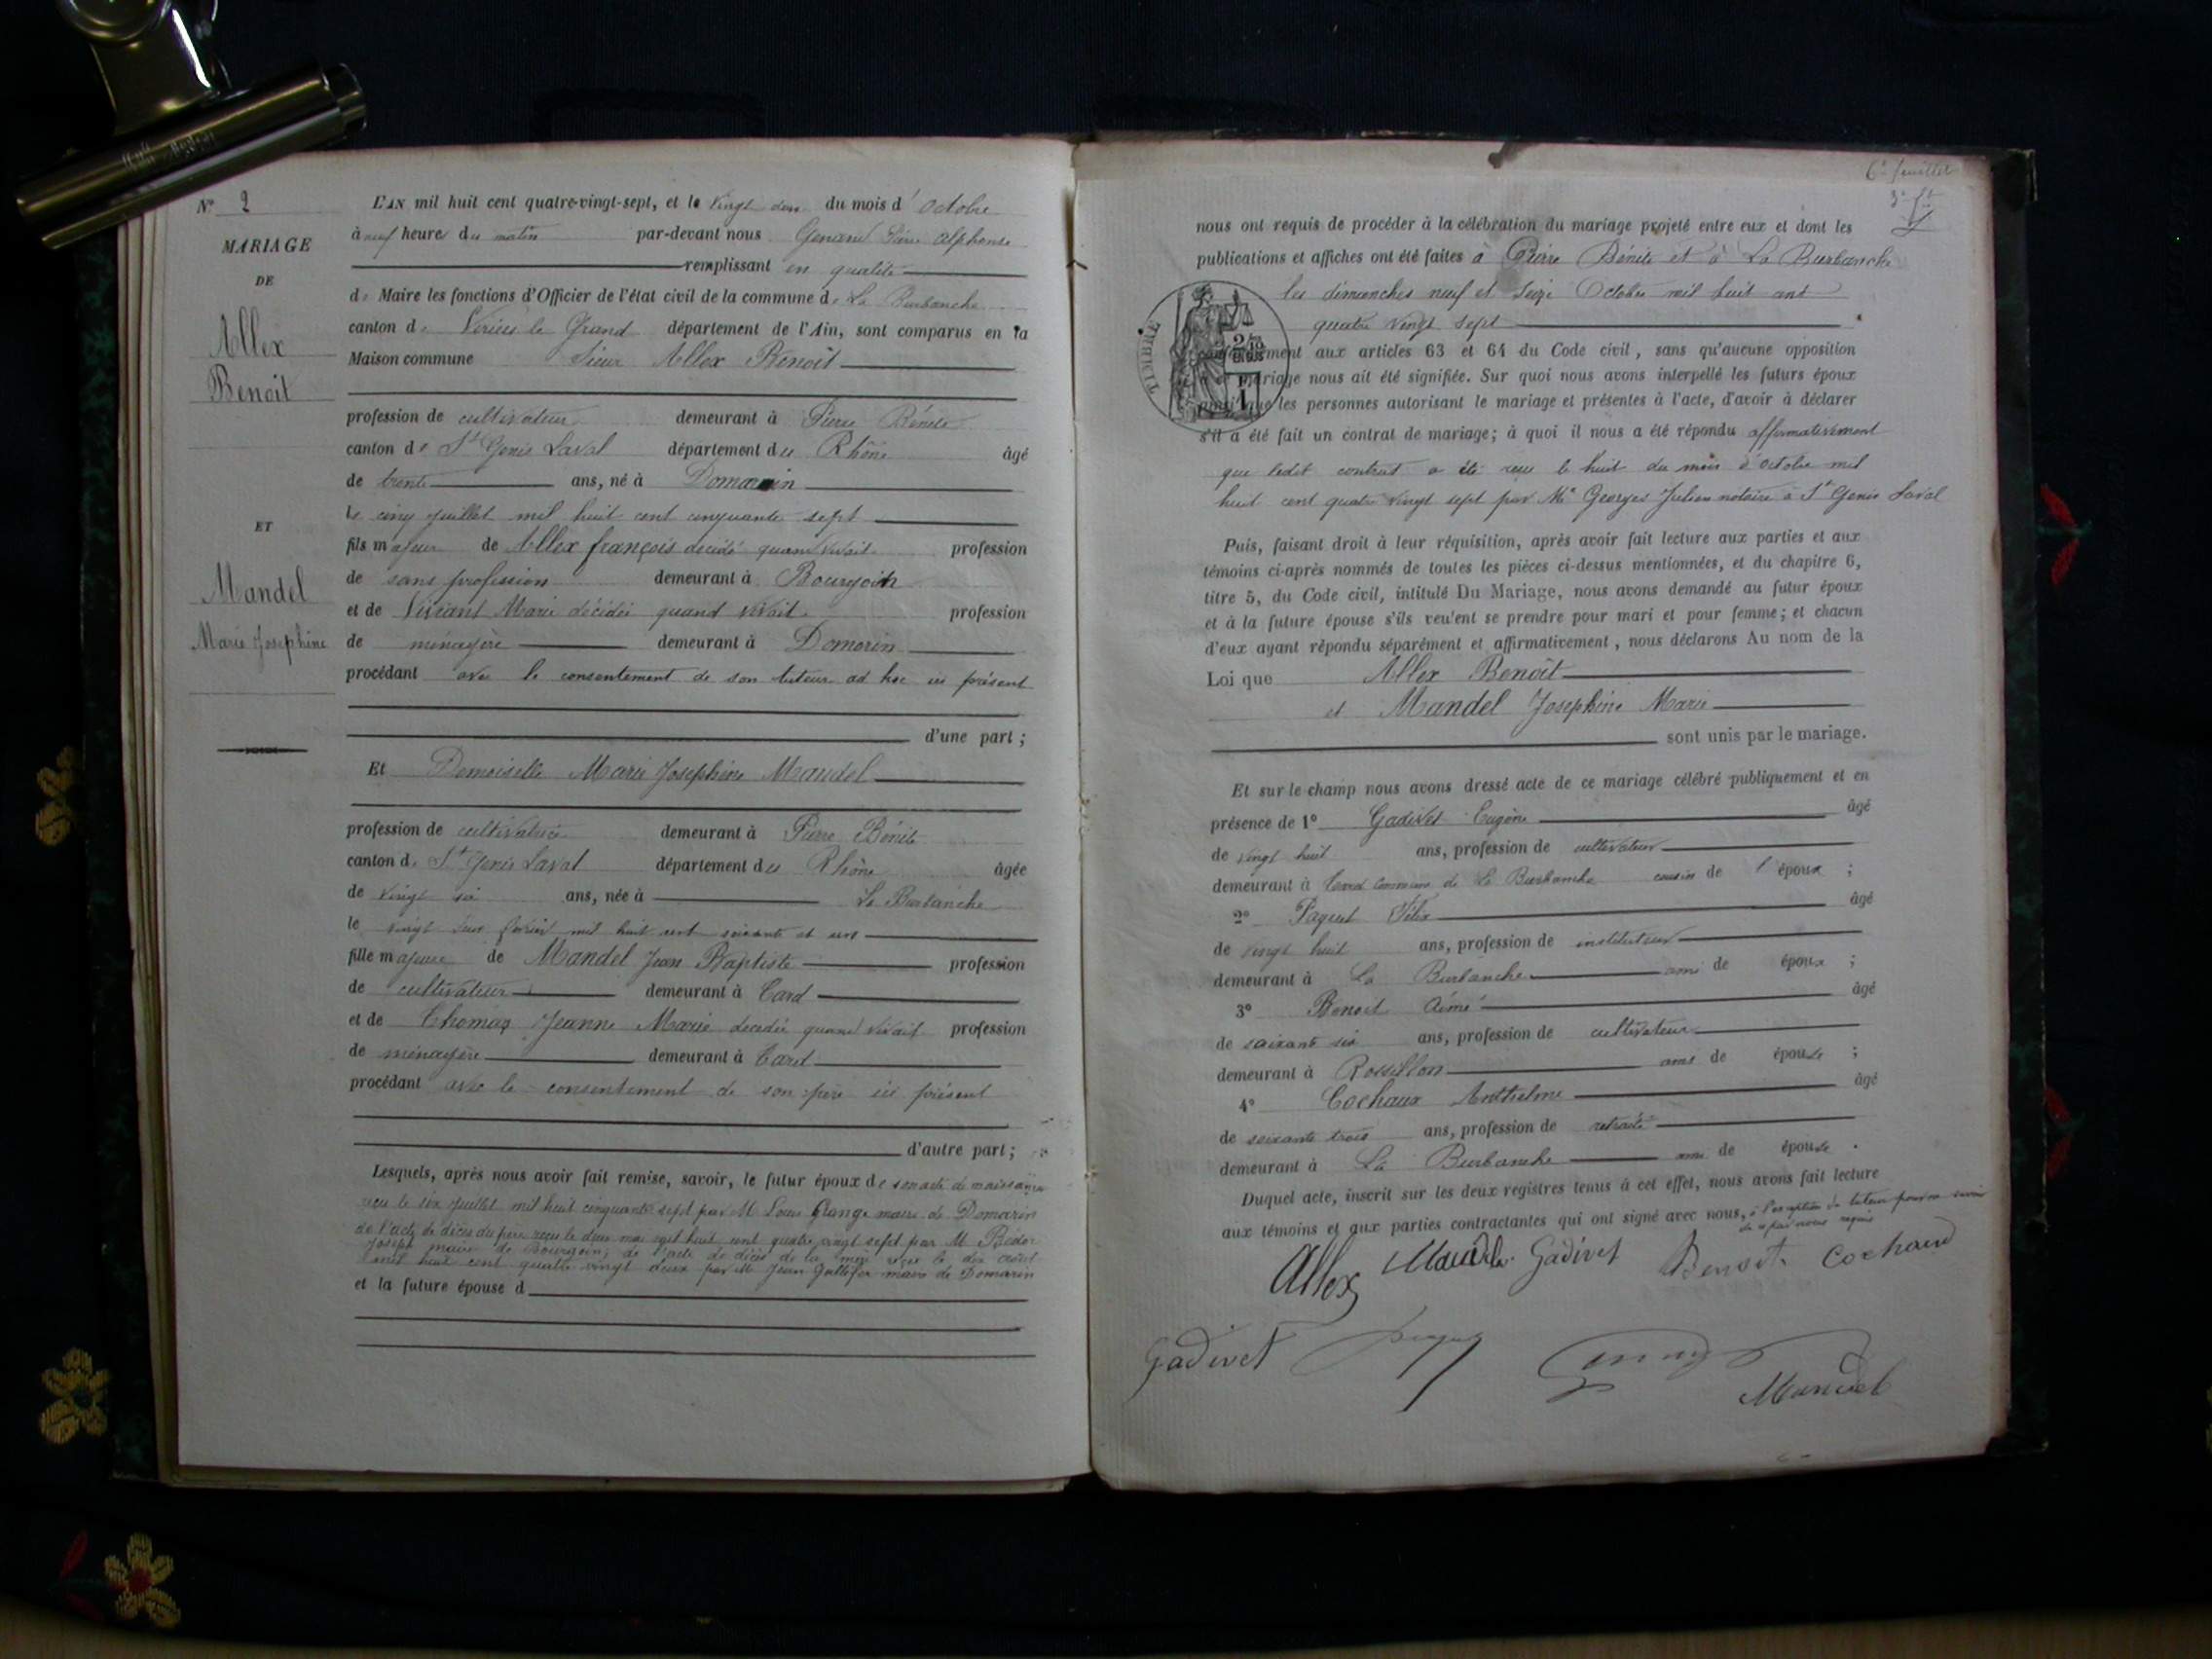 N° 2
MARIAGE
DE
Allex
Benoit
ET
Mandel
Marie Josephine
L'AN mil huit cent quatre-vingt-sept, et le vingt deux du mois d'Octobre
à neuf heure du matin par-devant nous Genand Pierre Alphonse
remplissant en qualité
de Maire les fonctions d'Officier de l'état civil de la commune de La Burbanche
canton de Virieu le Grand département de l'Ain, sont comparus en la
Maison commune Sieur Allex Benoît
profession de cultivateur demeurant à Pierre Bénite
canton de St Genis Laval département du Rhône âgé
de trente ans, né à Domarin
le cinq juillet mil huit cent cinquante sept
fils majeur de Allex françois décédé quand vivait profession
de sans profession demeurant à Bourgoin
et de Marie décédée quand vivait profession
de ménagère demeurant à Domarin
procédant avec le consentement de son tuteur ad hoc ici présent
d'une part ;
Et Demoiselle Marie Josephine Mandel
profession de cultivatrice demeurant à Pierre Bénite
canton de St Genis Laval département du Rhône âgée
de vingt six ans, née à La Burbanche
le vingt deux février mil huit cent soixante et un
fille majeure de Mandel Jean Baptiste profession
de cultivateur demeurant à Tard
et de Thomas Jeanne Marie décédée quand vivait profession
de ménagère demeurant à Tard
procédant avec le consentement de son père ici présent
d'autre part ;
Lesquels, après nous avoir fait remise, savoir, le futur époux de son acte de naissance
reçu le six juillet mil huit cinquante sept par M. Louis Grange maire de Domarin
de l'acte de décès du père reçu le deux mai mil huit cent quatre vingt sept par M
Joseph maire de Bourgoin, de l'acte de décès de la mère reçu le dix août
mil huit cent quatre vingt deux par M Jean maire de Domarin
et la future épouse d
6e feuillet
nous ont requis de procéder à la célébration du mariage projeté entre eux et dont les
publications et affiches ont été faites à Pierre Bénite et à La Burbanche
les dimanches neuf et seize Octobre mil huit cent
quatre vingt sept
TIMBRE
conformément aux articles 63 et 64 du Code civil, sans qu'aucune opposition
à ce mariage nous ait été signifiée. Sur quoi nous avons interpellé les futurs époux
ainsi que les personnes autorisant le mariage et présentes à l'acte, d'avoir à déclarer
s'il a été fait un contrat de mariage; à quoi il nous a été répondu affirmativement
que ledit contrat a été reçu le huit du mois d'octobre mil
huit cent quatre vingt sept par Me Georges Julien notaire à St Genis Laval
Puis, faisant droit à leur réquisition, après avoir fait lecture aux parties et aux
témoins ci-après nommés de toutes les pièces ci-dessus mentionnées, et du chapitre 6,
titre 5, du Code civil, intitulé Du Mariage, nous avons demandé au futur époux
et à la future épouse s'ils veulent se prendre pour mari et pour femme; et chacun
d'eux ayant répondu séparément et affirmativement, nous déclarons Au nom de la
Loi que Allex Benoît
et Mandel Josephine Marie
sont unis par le mariage.
Et sur-le-champ nous avons dressé acte de ce mariage célébré publiquement et en
présence de 1° Gadivet Eugène âgé
de vingt huit ans, profession de cultivateur
demeurant à Tard commune de La Burbanche cousin de l'époux ;
2° Paquet Félix âgé
de vingt huit ans, profession de instituteur
demeurant à La Burbanche ami de époux ;
3° Benoit Aimé âgé
de soixante six ans, profession de cultivateur
demeurant à Rossillon ami de épouse ;
4° Cochaux Anthelme âgé
de soixante trois ans, profession de retraité
demeurant à La Burbanche ami de épouse .
Duquel acte, inscrit sur les deux registres tenus à cet effet, nous avons fait lecture
aux témoins et aux parties contractantes qui ont signé avec nous, à l'exception du tuteur pour ne savoir
de ce par nous requis
Allex Mandel Gadivet Benoit Cochaud
Gadivet
Mandel